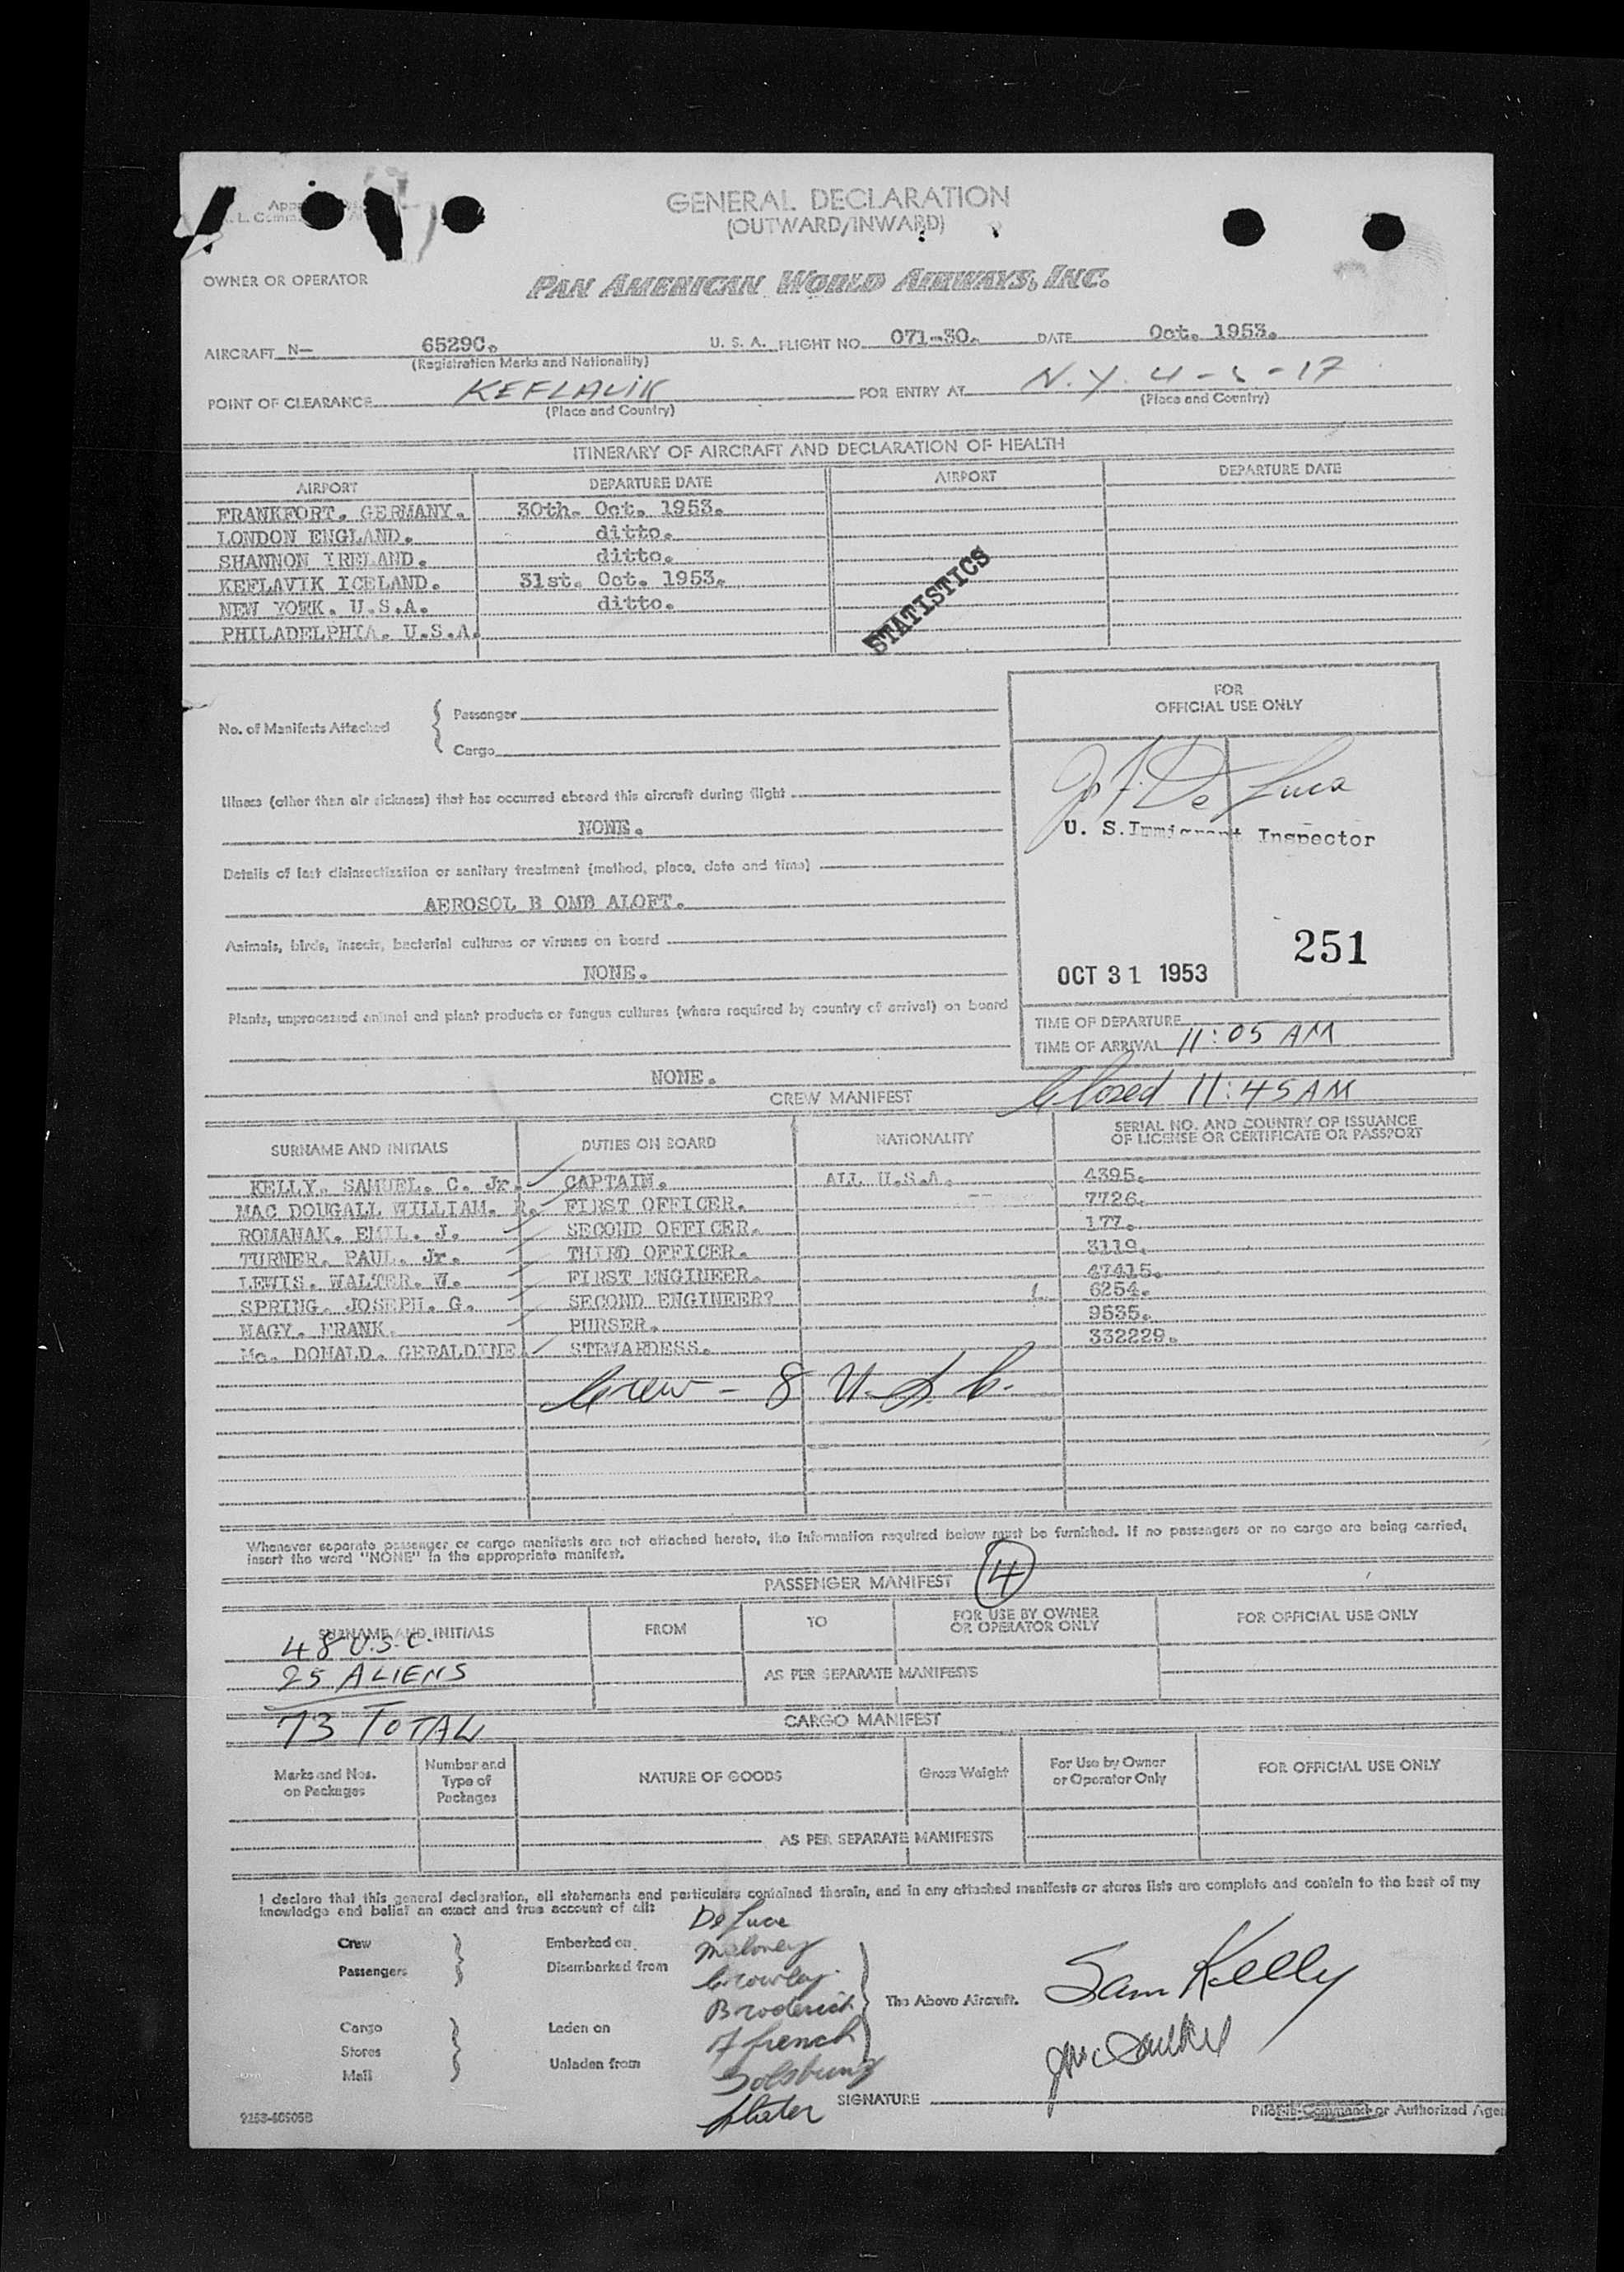 GENERAL DECLARATION
(OUTWARD/INWARD)
OWNER OR OPERATOR PAN AMERICAN WORLD AIRWAYS, INC.
AIRCRAFT N— 65290. U. S. A. FLIGHT NO. 071-30. DATE Oct. 1953.
(Registration Marks and Nationality)
POINT OF CLEARANCE KEFLAVIK FOR ENTRY AT N.Y. 4-
(Place and Country) (Place and Country)
ITINERARY OF AIRCRAFT AND DECLARATION OF HEALTH
AIRPORT DEPARTURE DATE AIRPORT DEPARTURE DATE
FRANKFORT. GERMANY. 30th. Oct. 1953.
LONDON ENGLAND. ditto.
SHANNON IRELAND. ditto.
KEFLAVIK ICELAND. 31st. Oct. 1953.
NEW YORK. U.S.A. ditto.
PHILADELPHIA. U.S.A.
STATISTICS
No. of Manifests Attached { Passenger
Cargo
FOR
OFFICIAL USE ONLY
De Luca
U. S. Immigrant Inspector
Illness (other than air sickness) that has occurred aboard this aircraft during flight
NONE.
Details of last disinsectization or sanitary treatment (method, place, date and time)
AEROSOL B OMB ALOFT.
Animals, birds, insects, bacterial cultures or viruses on board
NONE.
251
OCT 31 1953
Plants, unprocessed animal and plant products or fungus cultures (where required by country of arrival) on board
NONE.
TIME OF DEPARTURE
TIME OF ARRIVAL 11:05 AM
Closed 11:45 AM
CREW MANIFEST
SURNAME AND INITIALS DUTIES ON BOARD NATIONALITY SERIAL NO. AND COUNTRY OF ISSUANCE
OF LICENSE OR CERTIFICATE OR PASSPORT
KELLY. SAMUEL. C. Jr. CAPTAIN. ALL U.S.A. 4395.
MAC DOUGALL WILLIAM. R. FIRST OFFICER. 7726.
ROMANAK. EMIL. J. SECOND OFFICER. 177.
TURNER. PAUL. Jr. THIRD OFFICER. 3119.
LEWIS. WALTER. W. FIRST ENGINEER. 47415.
SPRING. JOSEPH. G. SECOND ENGINEER? 6254.
NAGY. FRANK. PURSER. 9535.
Mc. DONALD. GERALDINE. STEWARDESS. 332229.
Crew - 8 U.S.C.
Whenever separate passenger or cargo manifests are not attached hereto, the information required below must be furnished. If no passengers or no cargo are being carried,
insert the word "NONE" in the appropriate manifest.
PASSENGER MANIFEST 4
SURNAME AND INITIALS FROM TO FOR USE BY OWNER
OR OPERATOR ONLY FOR OFFICIAL USE ONLY
48 U.S.C.
25 ALIENS AS PER SEPARATE MANIFESTS
73 TOTAL
CARGO MANIFEST
Marks and Nos.
on Packages
Number and
Type of
Packages
NATURE OF GOODS
Gross Weight
For Use by Owner
or Operator Only
FOR OFFICIAL USE ONLY
AS PER SEPARATE MANIFESTS
I declare that this general declaration, all statements and particulars contained therein, and in any attached manifests or stores lists are complete and contain to the best of my
knowledge and belief an exact and true account of all:
De Luca
Crew Embarked on Maloney
Passengers Disembarked from Crowley
Broderick The Above Aircraft. Sam Kelly
Cargo Laden on French
Stores
Mail Unladen from
SIGNATURE
Pilot-in-Command or Authorized Agen
9253-46905B